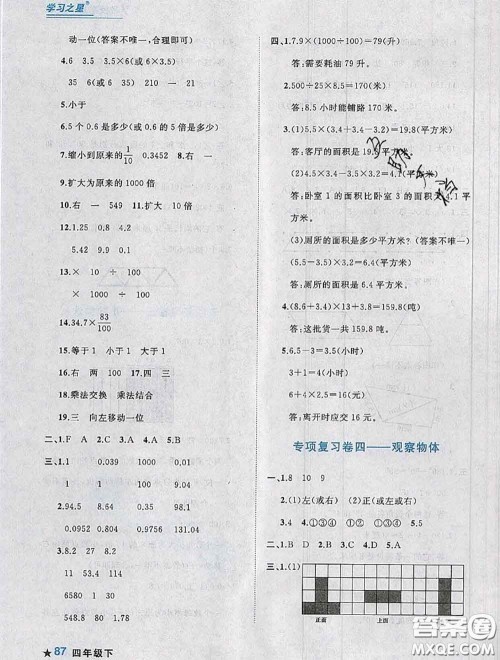 学习之星
动一位(答案不唯一,合理即可)
4.6 3.5 3.5×6(或6×3.5)
35 6(或6 35) 210 一 21
5.小于
6.5个0.6是多少(或0.6的5倍是多少)
7.缩小到原来的1/10 0.3452 8.右 一
9.扩大为原来的1000倍
10.右 一 549 11.扩大 10倍
12.1.25 0.8 4.2
5.42 9.9 0.1
13.× 10 ÷ 100
× 1000 ÷ 100
14.34.7×83/100
15.等于1 小于1 大于1
16.右 两 100 17.四 三
18.乘法交换 乘法结合
19.三 向左移动一位
二、1.F A 2.D 3.C 4.A 5.B
三、1.1 0.51 0.039 0.01
0.44 1 0.34 0.25
2.94.5 9.45 0.945 0.945
0.0528 0.001 0.9756 131.04
3.8.2 27 32 57
33 4.8 113 457
6580 1 15.7 1
34 1 1.52 48
★87 四年级下
四、1.7.9×(1000÷100)=79(升)
答:需要耗油79升。
2.500÷25×8.5=170(米)
答:8.5小时能铺路170米。
3.(1)5.5×(3.4+3.4-3.2)=19.8(平方米)
答:客厅的面积是19.8平方米。
(2)4.5×3.4-3.5×3.2=4.1(平方米)
答:卧室1的面积比卧室3的面积大4.1平方米。
(3)厕所的面积是多少平方米?(答案不唯一)
(5.5-3.5)×3.2=6.4(平方米)
答:厕所的面积是6.4平方米。
4.(8.6+3.4)×13+3.8=159.8(吨)
答:这批货一共159.8吨。
5.6.5-3=3.5(小时)
3+1=4(小时)
6+4×2.5=16(元)
答:离开时应交16元。
专项复习卷四——观察物体
一、1.8 10 9
2.(1)左(或右) (2)正(或左或右)
3.4 4.①③④ ①③④ 5.5
二、1.B 2.D 3.C 4.D 5.A
三、1.(1)
正面 上面 右面
答案圈
MXQE.COM